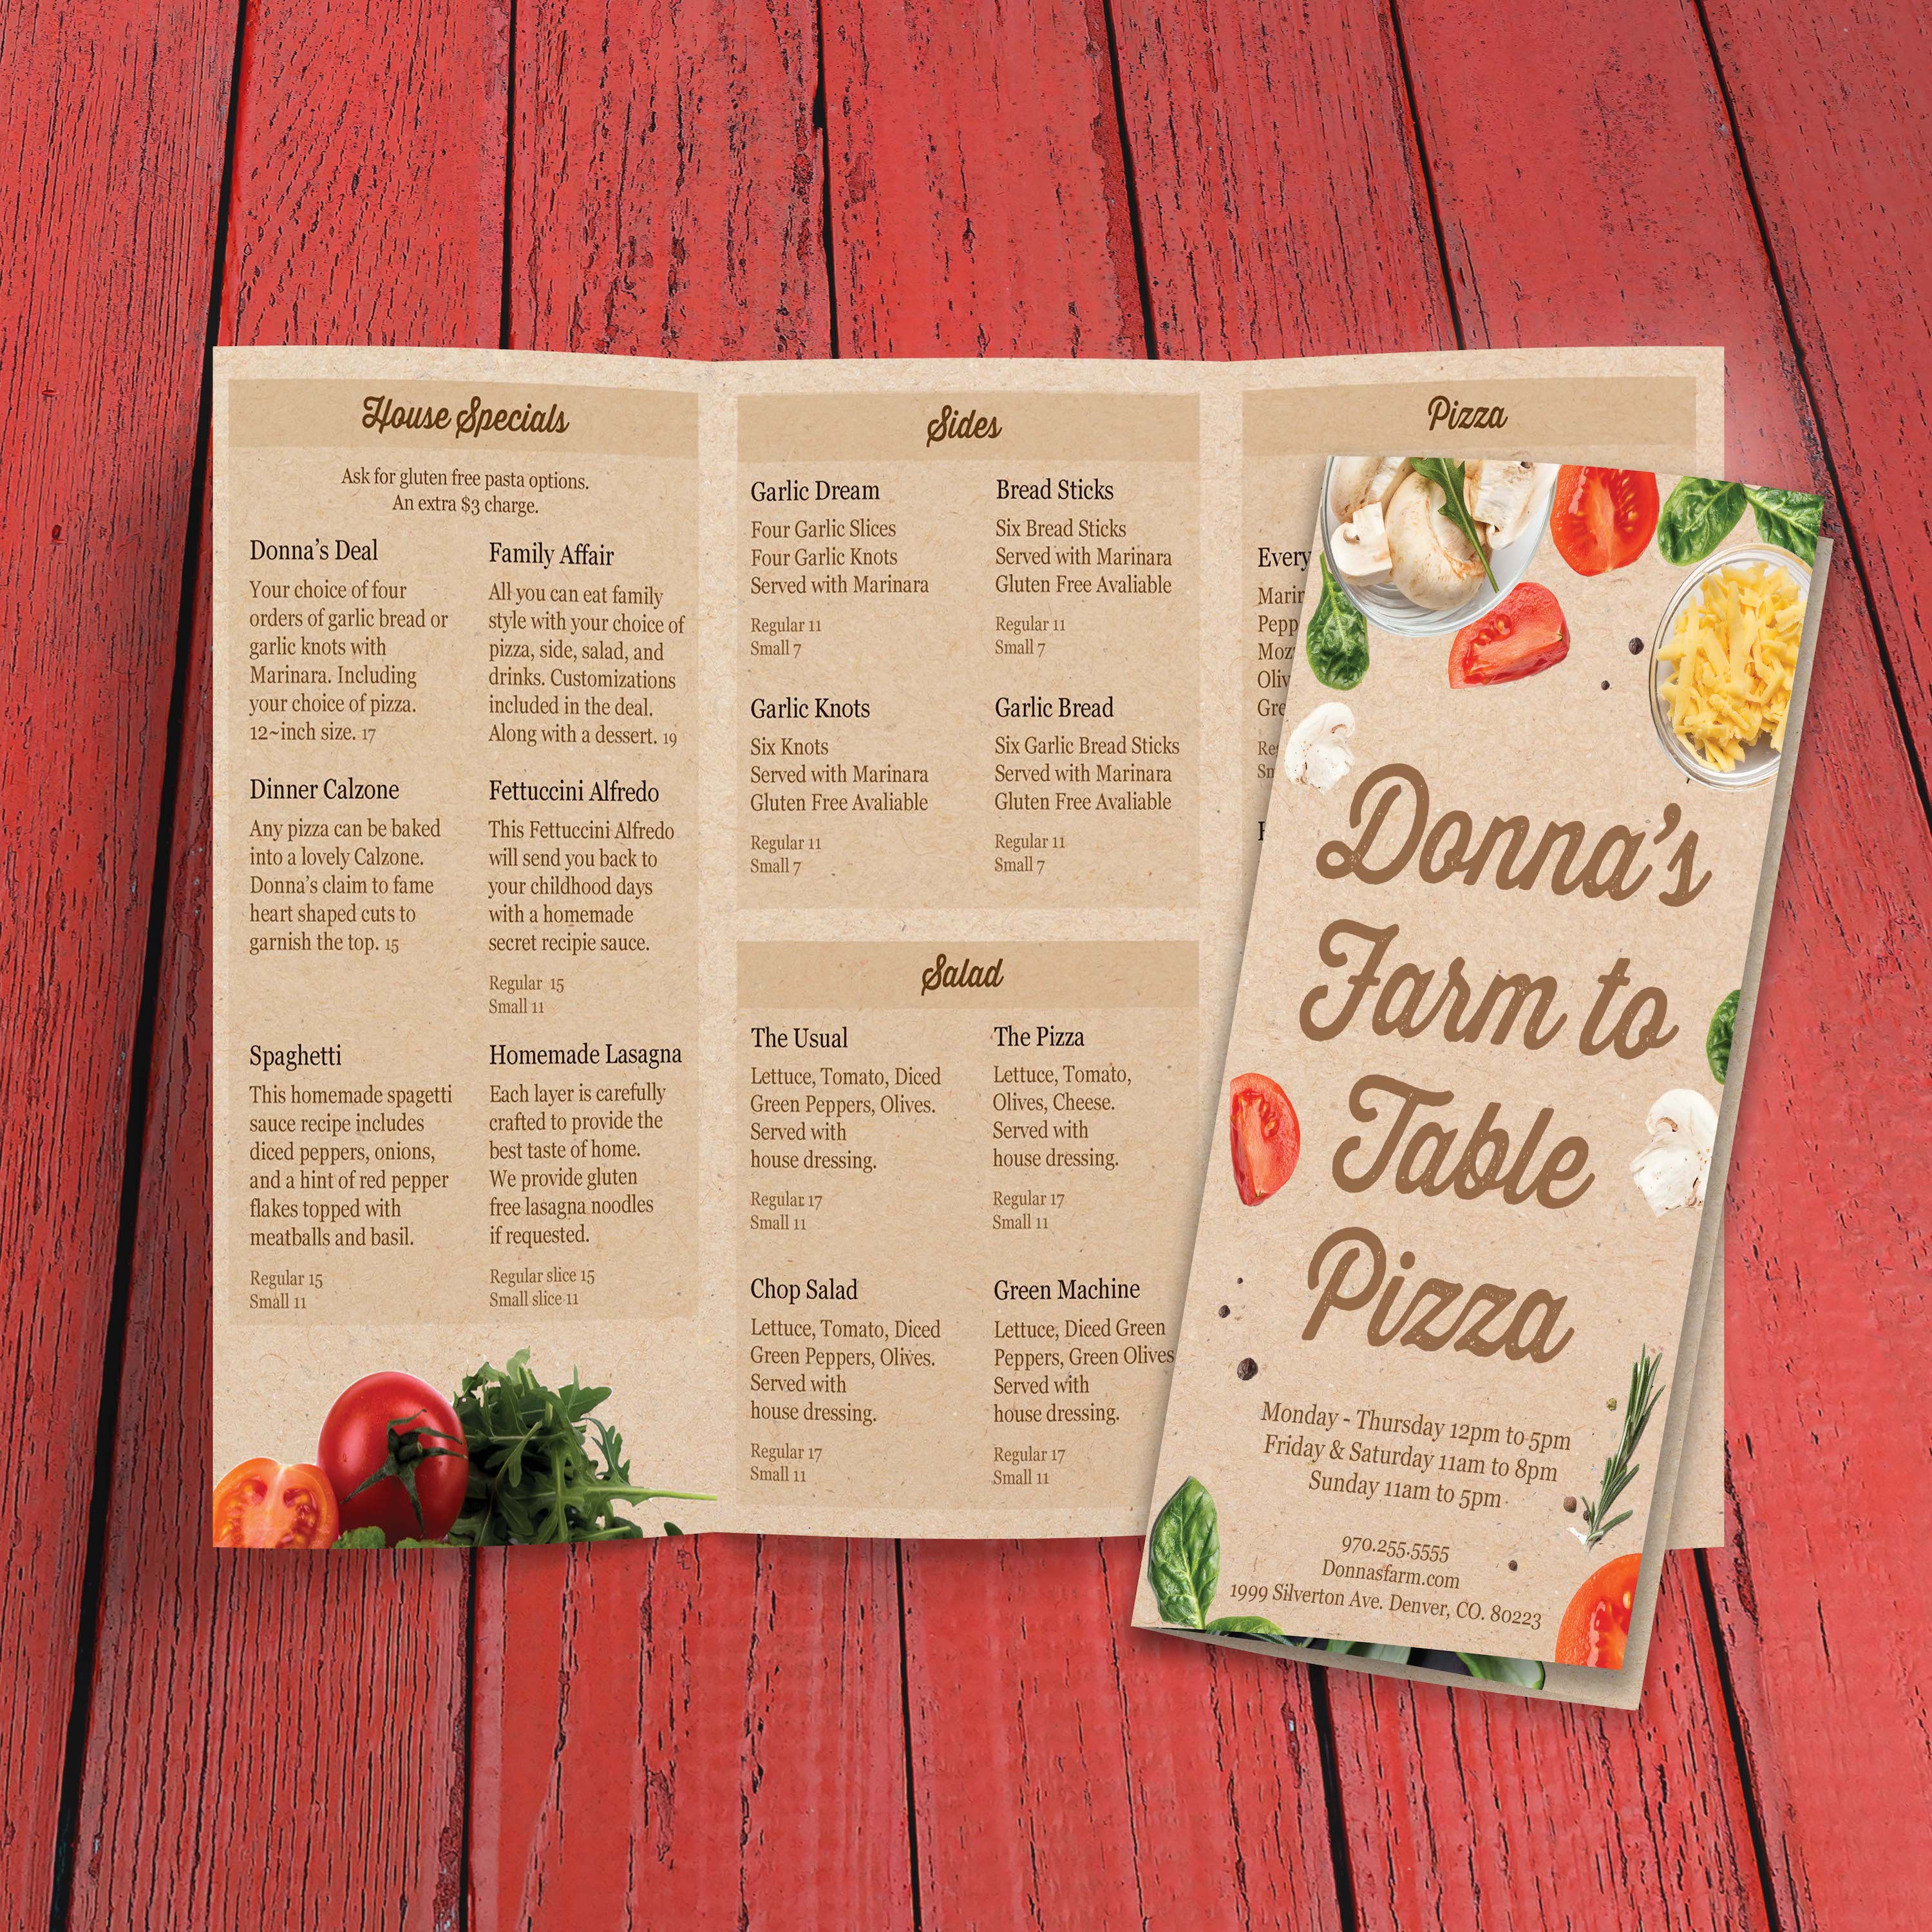 House Specials
Ask for gluten free pasta options.
An extra $3 charge.
Donna's Deal
Your choice of four
orders of garlic bread or
garlic knots with
Marinara. Including
your choice of pizza.
12~inch size. 17
Family Affair
All you can eat family
style with your choice of
pizza, side, salad, and
drinks. Customizations
included in the deal.
Along with a dessert. 19
Dinner Calzone
Any pizza can be baked
into a lovely Calzone.
Donna's claim to fame
heart shaped cuts to
garnish the top. 15
Fettuccini Alfredo
This Fettuccini Alfredo
will send you back to
your childhood days
with a homemade
secret recipie sauce.
Regular 15
Small 11
Spaghetti
This homemade spagetti
sauce recipe includes
diced peppers, onions,
and a hint of red pepper
flakes topped with
meatballs and basil.
Regular 15
Small 11
Homemade Lasagna
Each layer is carefully
crafted to provide the
best taste of home.
We provide gluten
free lasagna noodles
if requested.
Regular slice 15
Small slice 11
Sides
Garlic Dream
Four Garlic Slices
Four Garlic Knots
Served with Marinara
Regular 11
Small 7
Bread Sticks
Six Bread Sticks
Served with Marinara
Gluten Free Avaliable
Regular 11
Small 7
Garlic Knots
Six Knots
Served with Marinara
Gluten Free Avaliable
Regular 11
Small 7
Garlic Bread
Six Garlic Bread Sticks
Served with Marinara
Gluten Free Avaliable
Regular 11
Small 7
Salad
The Usual
Lettuce, Tomato, Diced
Green Peppers, Olives.
Served with
house dressing.
Regular 17
Small 11
The Pizza
Lettuce, Tomato,
Olives, Cheese.
Served with
house dressing.
Regular 17
Small 11
Chop Salad
Lettuce, Tomato, Diced
Green Peppers, Olives.
Served with
house dressing.
Regular 17
Small 11
Green Machine
Lettuce, Diced Green
Peppers, Green Olives
Served with
house dressing.
Regular 17
Small 11
Pizza
Every
Donna's
Farm to
Table
Pizza
Monday - Thursday 12pm to 5pm
Friday & Saturday 11am to 8pm
Sunday 11am to 5pm
970.255.5555
Donnasfarm.com
1999 Silverton Ave. Denver, CO. 80223